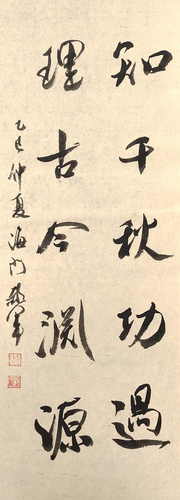 知千秋功過
理古今淵源
乙巳仲夏海门